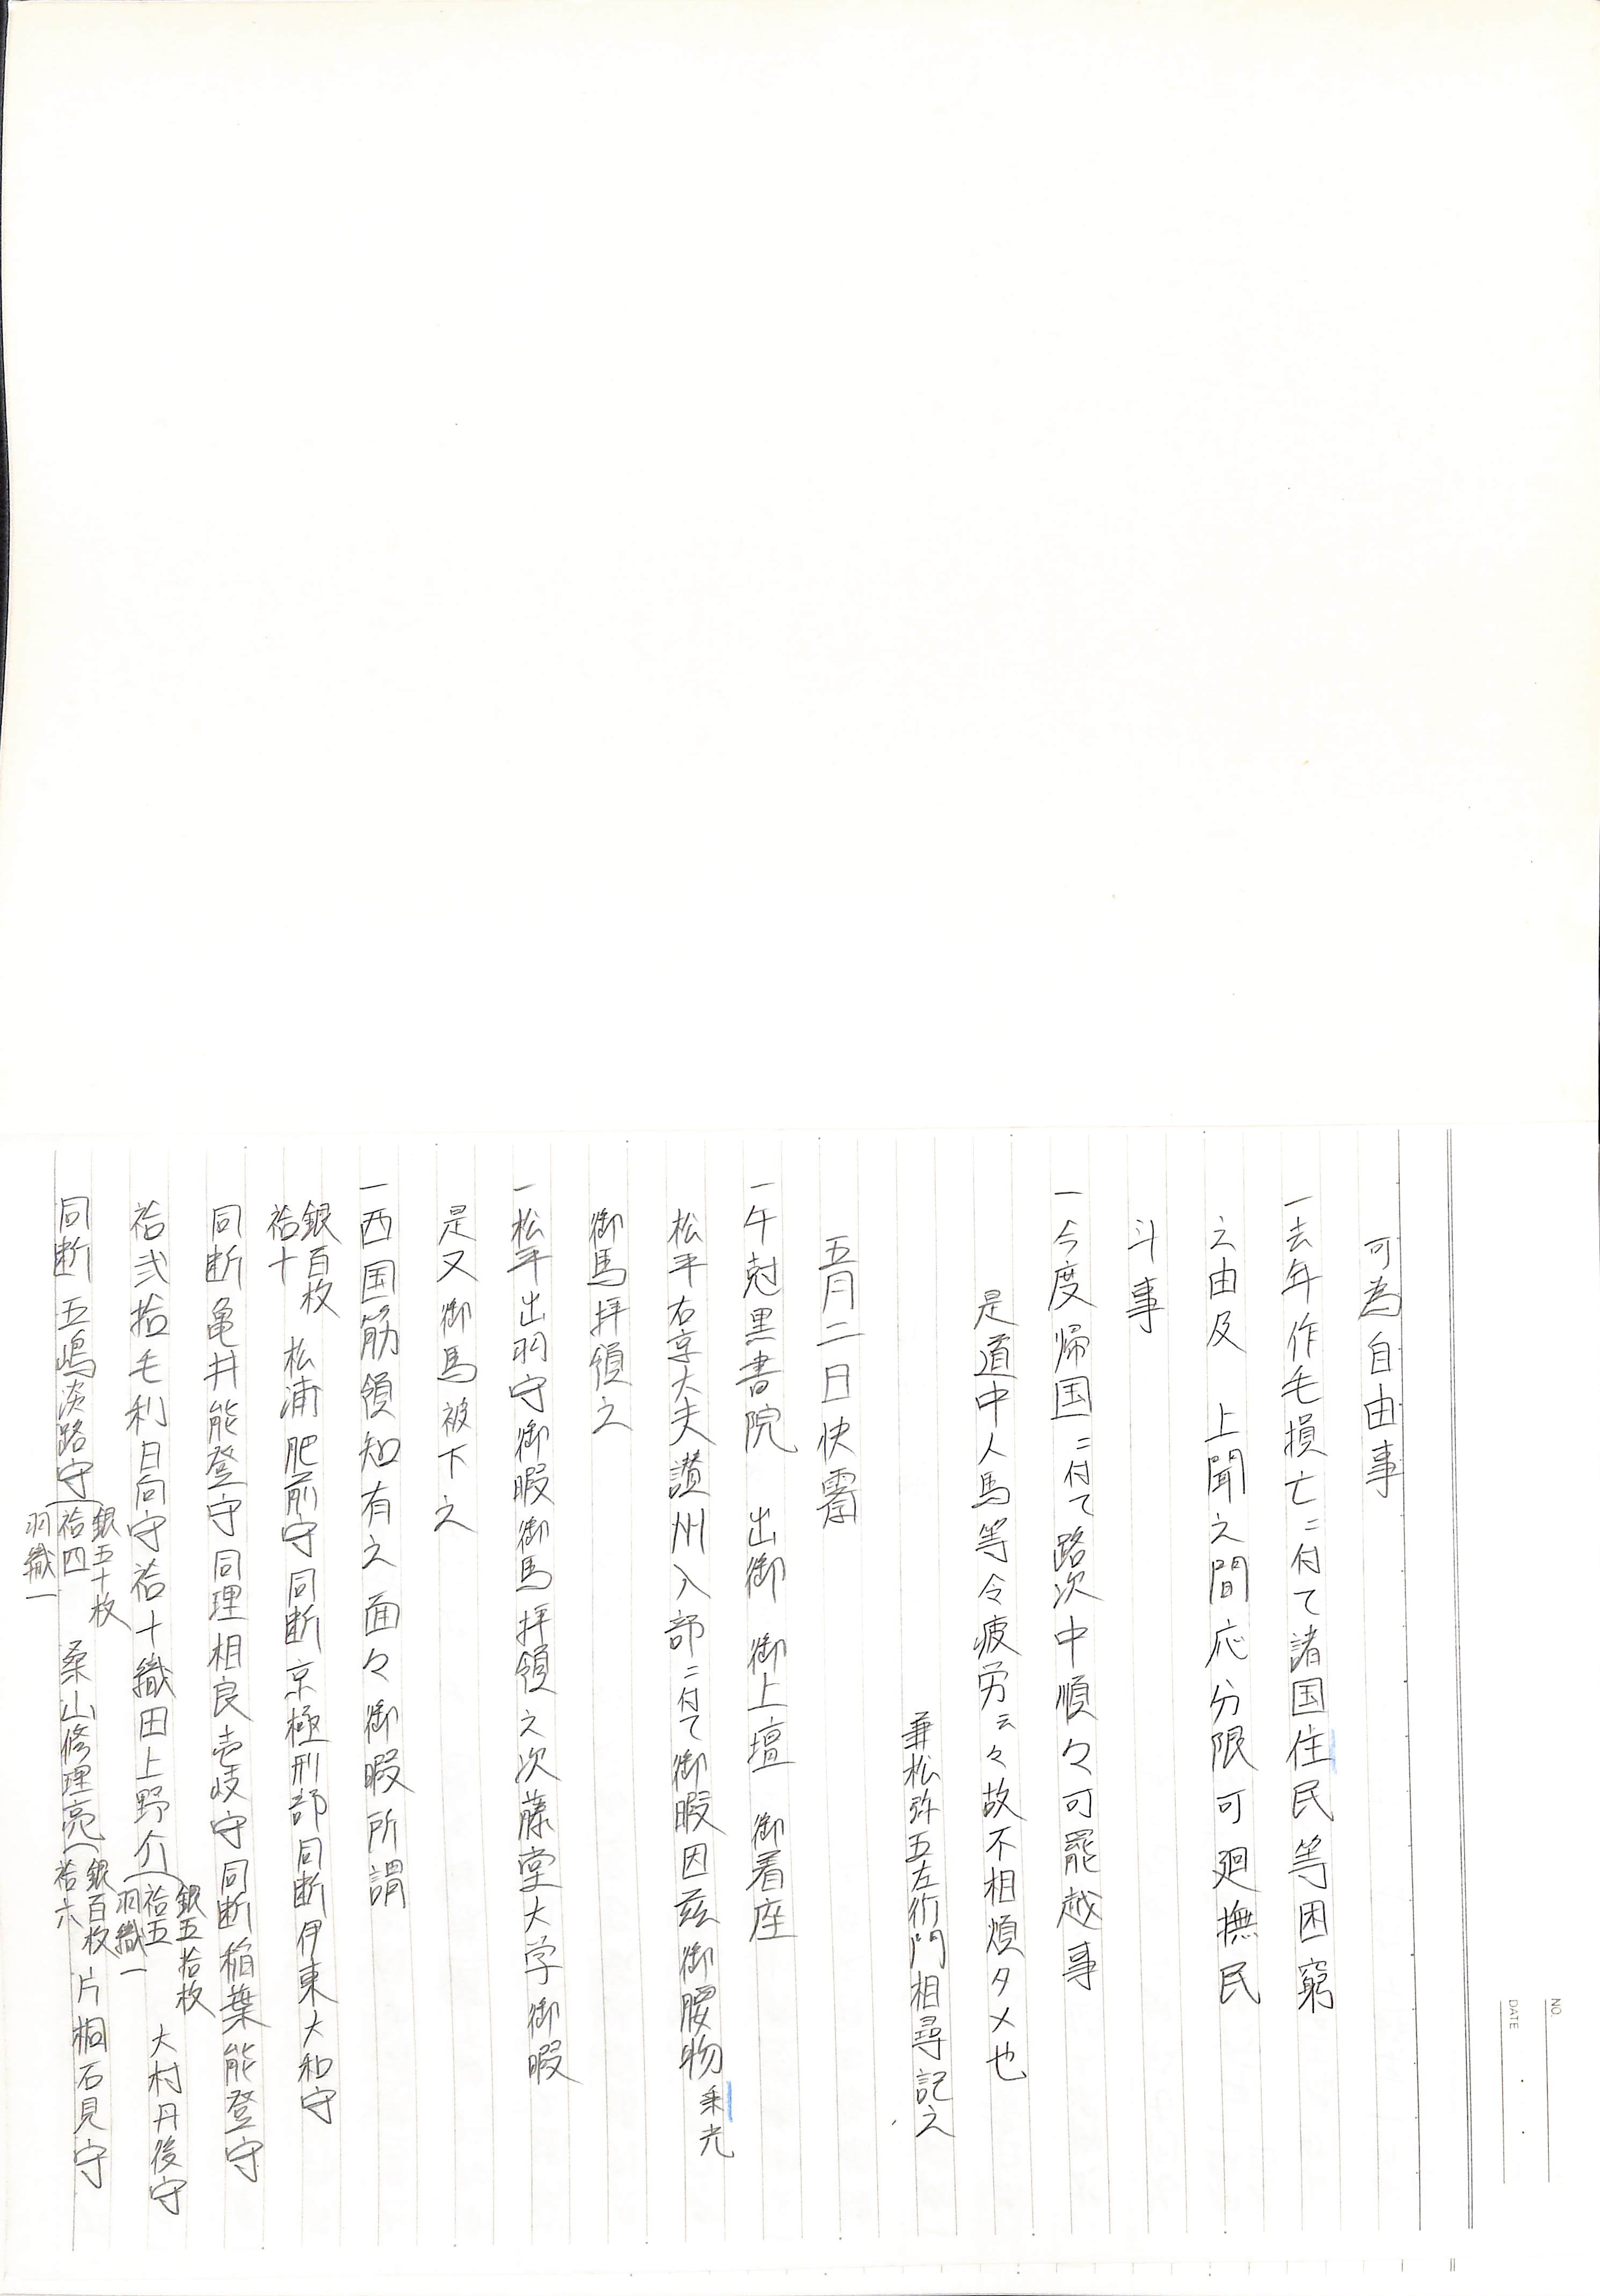 可為自由事
一去年作毛損亡ニ付て諸国住民等困窮
之由及　上聞之間応分限可廻撫民
斗事
一今度帰国ニ付て路次中順々可罷越事
是道中人馬等令疲労云々故不相煩タメ也
兼松弥五左衛門相尋記之
五月二日快霽
一午尅黒書院　出御　御上壇　御着座
松平右京大夫讃州入部ニ付て御暇因茲御腰物乗光
御馬拝領之
一松平出羽守御暇御馬拝領之次藤堂大学御暇
是又御馬被下之
一西国筋領知有之面々御暇所謂
銀百枚
袷十　松浦肥前守同断京極刑部同断伊東大和守
同断亀井能登守同理相良壱岐守同断稲葉能登守
袷弐拾毛利日向守袷十織田上野介(銀五拾枚
袷五
羽織一　大村丹後守
同断　五嶋淡路守(銀五十枚
袷四
羽織一　桑山修理亮(銀百枚
袷六　片桐石見守
NO.
DATE